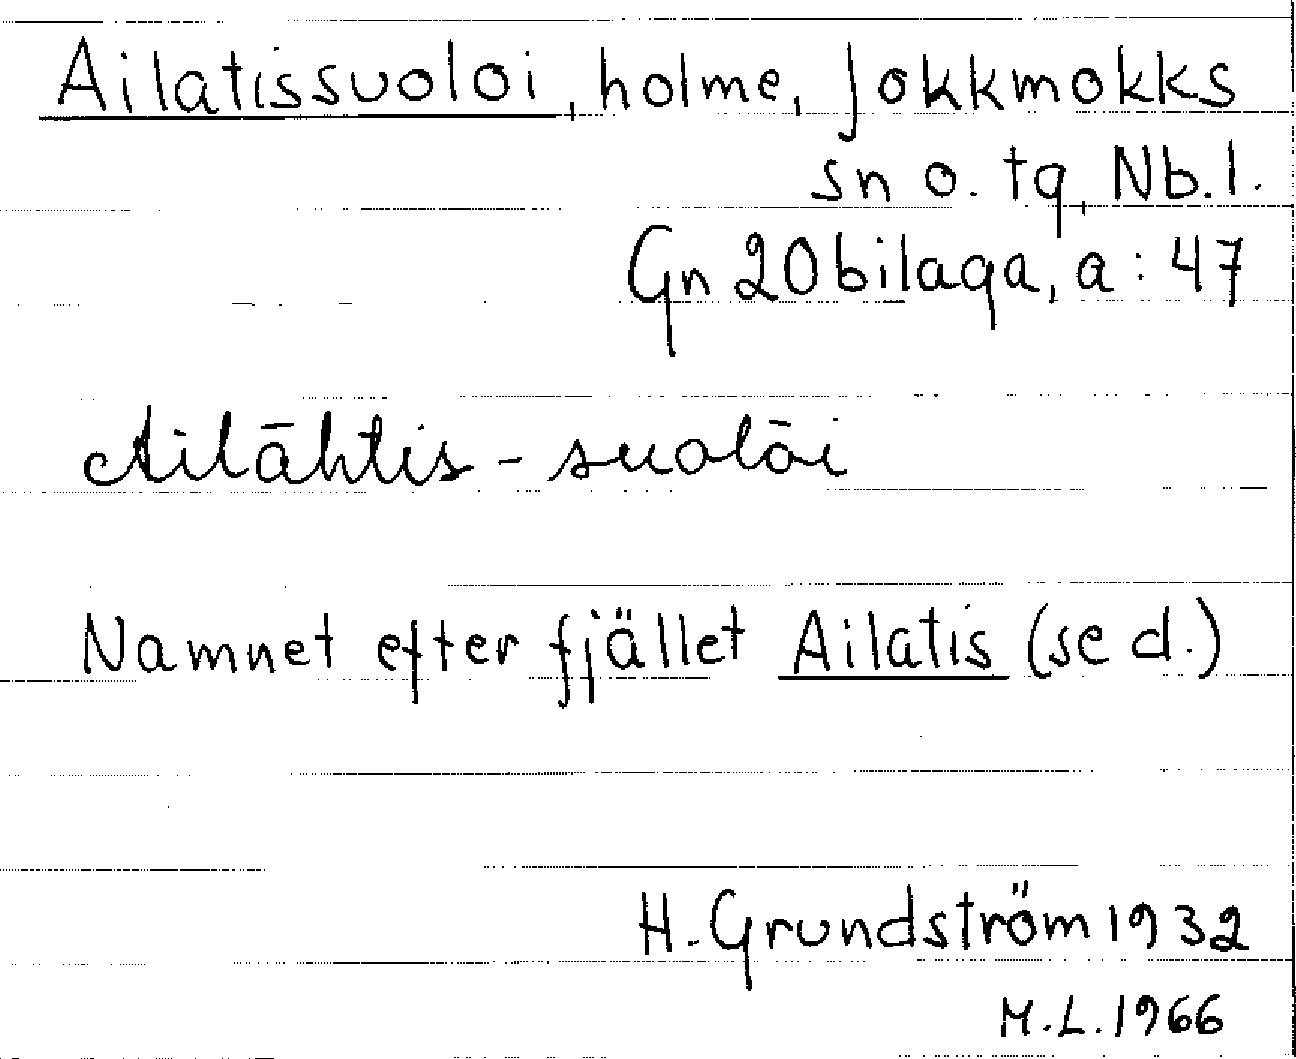 Ailatissuoloi, holme, Jokkmokks
sn o. tg, Nb.l.
Gn 20 bilaga, a: 47
Ailāhtis-suolōi
Namnet efter fjället Ailatis (se d.)
H. Grundström 1932
M.L. 1966